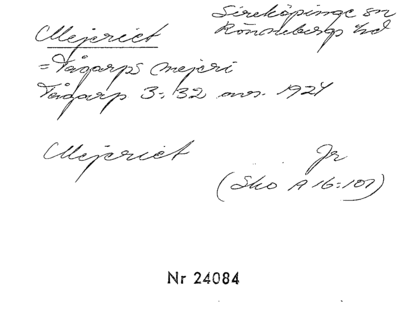 Mejeriet
Sireköpinge sn
Rönnebergs hd
= Tågarps mejeri
Tågarp 3:32 avs. 1924
Mejeriet
Jr
(Sko A 16:107)
Nr 24084